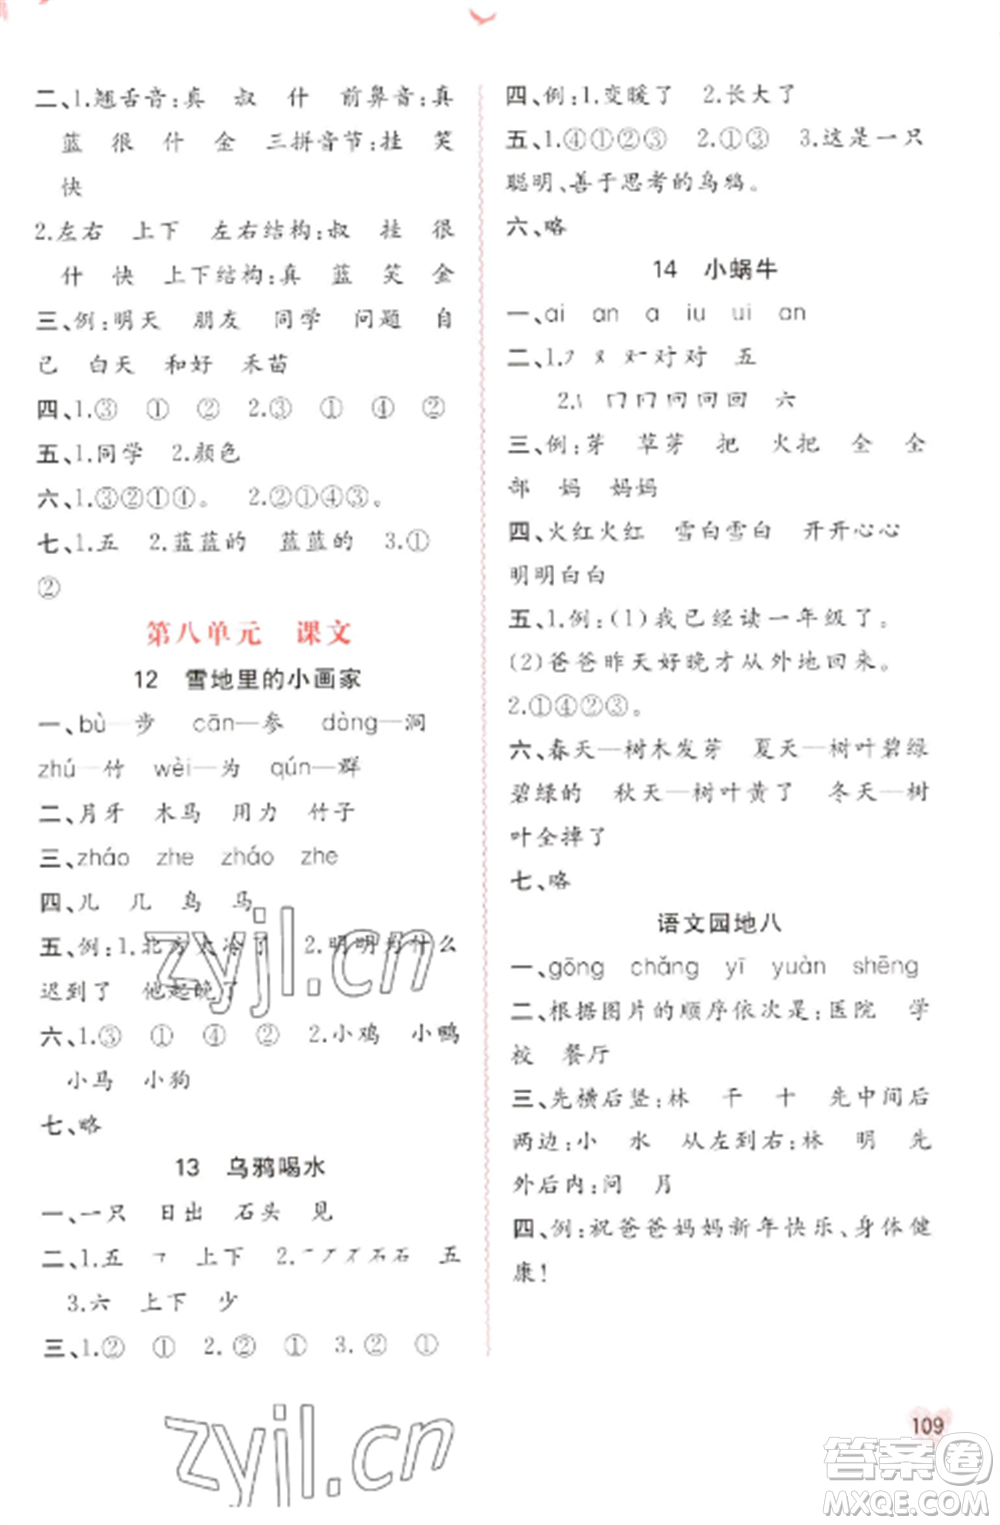 二、1.翘舌音:真 叔 什 前鼻音:真
蓝 很 什 金 三拼音节:挂 笑
快
2.左右 上下 左右结构:叔 挂 很
什 快 上下结构:真 蓝 笑 金
三、例:明天 朋友 同学 问题 自
己 白天 和好 禾苗
四、1.③ ① ② 2.③ ① ④ ②
五、1.同学 2.颜色
六、1.③②①④。 2.②①④③。
七、1.五 2.蓝蓝的 蓝蓝的 3.①
②
第八单元 课文
12 雪地里的小画家
一、bù—步 cān—参 dòng—洞
zhú—竹 wèi—为 qún—群
二、月牙 木马 用力 竹子
三、zháo zhe zháo zhe
四、儿 几 鸟 马
五、例:1.北方太冷了 2.明明为什么
迟到了 他起晚了
六、1.③ ① ④ ② 2.小鸡 小鸭
小马 小狗
七、略
13 乌鸦喝水
一、一只 日出 石头 见
二、1.五 ㇕ 上下 2.一 丆 ア 石 石 五
3.六 上下 少
三、1.② ① 2.② ① 3.② ①
四、例:1.变暖了 2.长大了
五、1.④①②③ 2.①③ 3.这是一只
聪明、善于思考的乌鸦。
六、略
14 小蜗牛
一、ai an a iu ui an
二、1.㇇ ヌ 对 对 对 五
2.丨 冂 冂 冋 回 回 六
三、例:芽 草芽 把 火把 全 全
部 妈 妈妈
四、火红火红 雪白雪白 开开心心
明明白白
五、1.例:(1)我已经读一年级了。
(2)爸爸昨天好晚才从外地回来。
2.①④②③。
六、春天—树木发芽 夏天—树叶碧绿
碧绿的 秋天—树叶黄了 冬天—树
叶全掉了
七、略
语文园地八
一、gōng chǎng yī yuàn shēng
二、根据图片的顺序依次是:医院 学
校 餐厅
三、先横后竖:林 干 十 先中间后
两边:小 水 从左到右:林 明 先
外后内:问 月
四、例:祝爸爸妈妈新年快乐、身体健
康!
109
zyjl.cn
zyjl.cn
答案圈
MXQE.COM